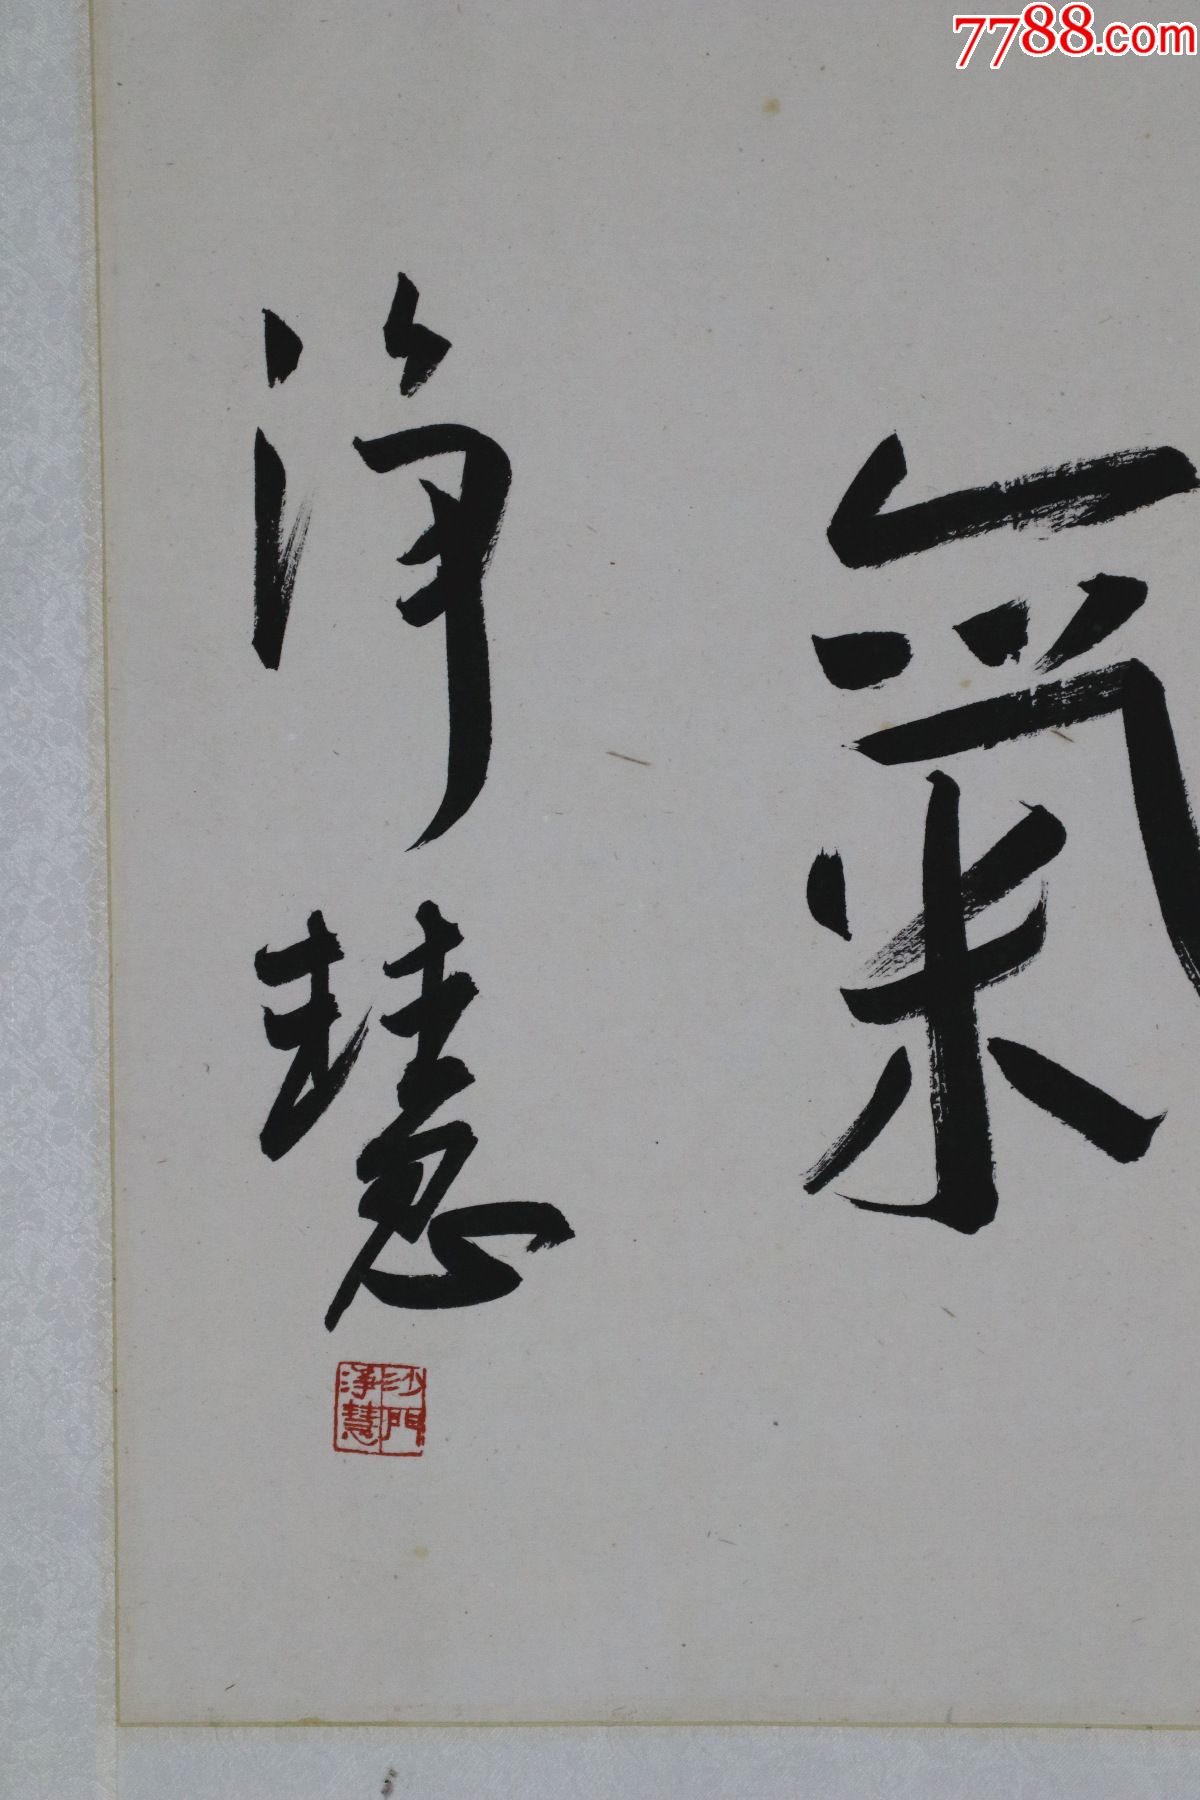 7788.com
氣
净慧
沙門
净慧